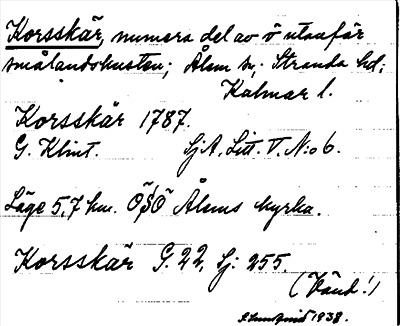 Korsskär, numera del av ö utanför
smålandskusten; Ålem sn; Stranda hd;
Kalmar l.
Korsskär 1787.
G. Klint. SjA, Litt. V. N:o 6.
Läge 5,7 km. ÖSÖ Ålems kyrka.
Korsskär G. 22, Sj: 255.
(Vänd!)
1938.